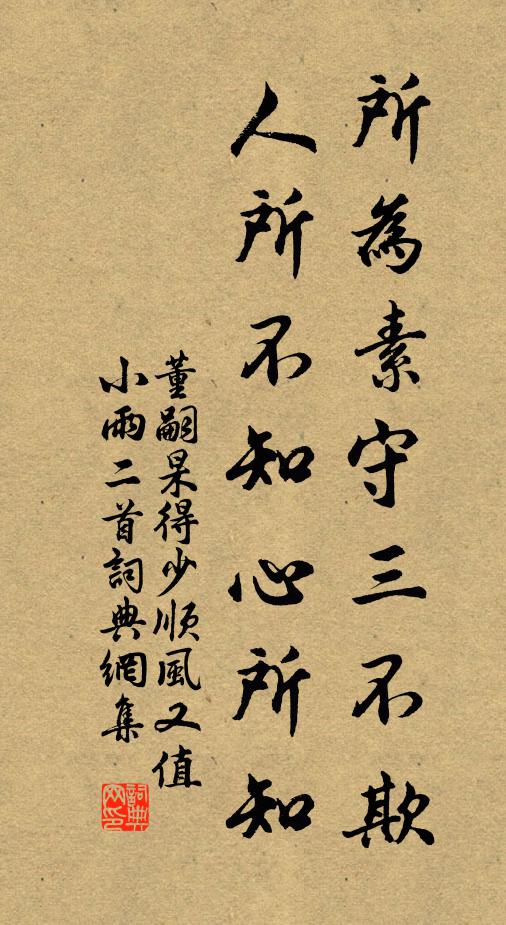 所為素守三不欺
人所不知心所知
董嗣杲得少順風又值
小雨二首詞典網集
詞典
网印